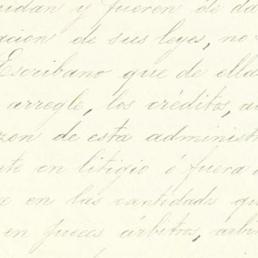 cuidan y fueren de da
acion de sus leyes, no
Escribano que de ella
arregle, los créditos, a
zon de esta administr
te en litigio ó fuera d
e en las cantidades qu
en jueces árbitros, arbi